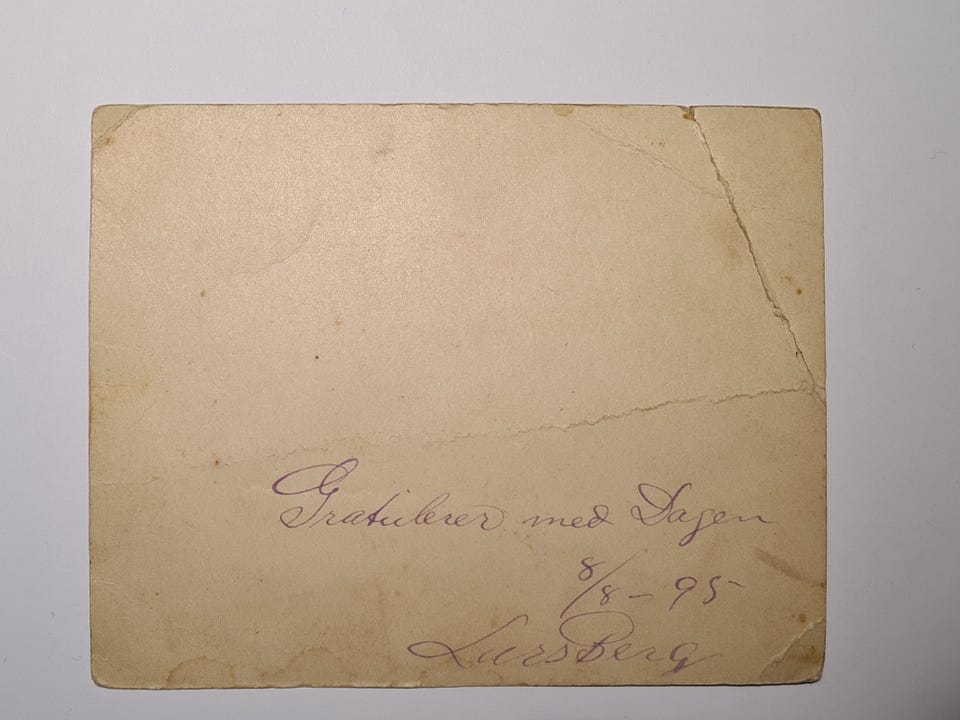 Gratulerer med Dagen
8/8 – 95
Lars Berg